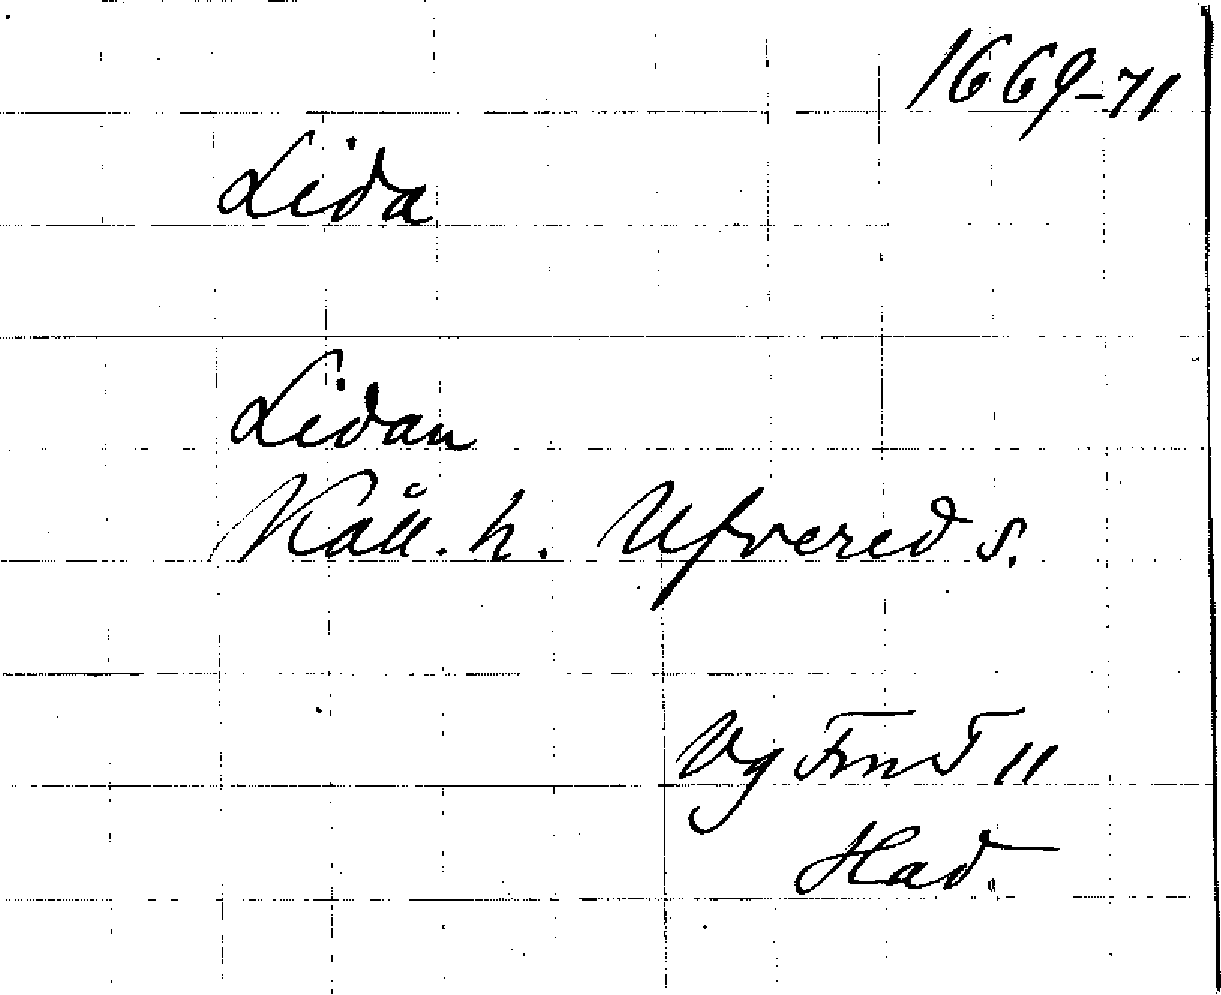 1669-71
Lida
Lidan
Kåll. h. Ufvered s.
Vg FmT 11
Had.